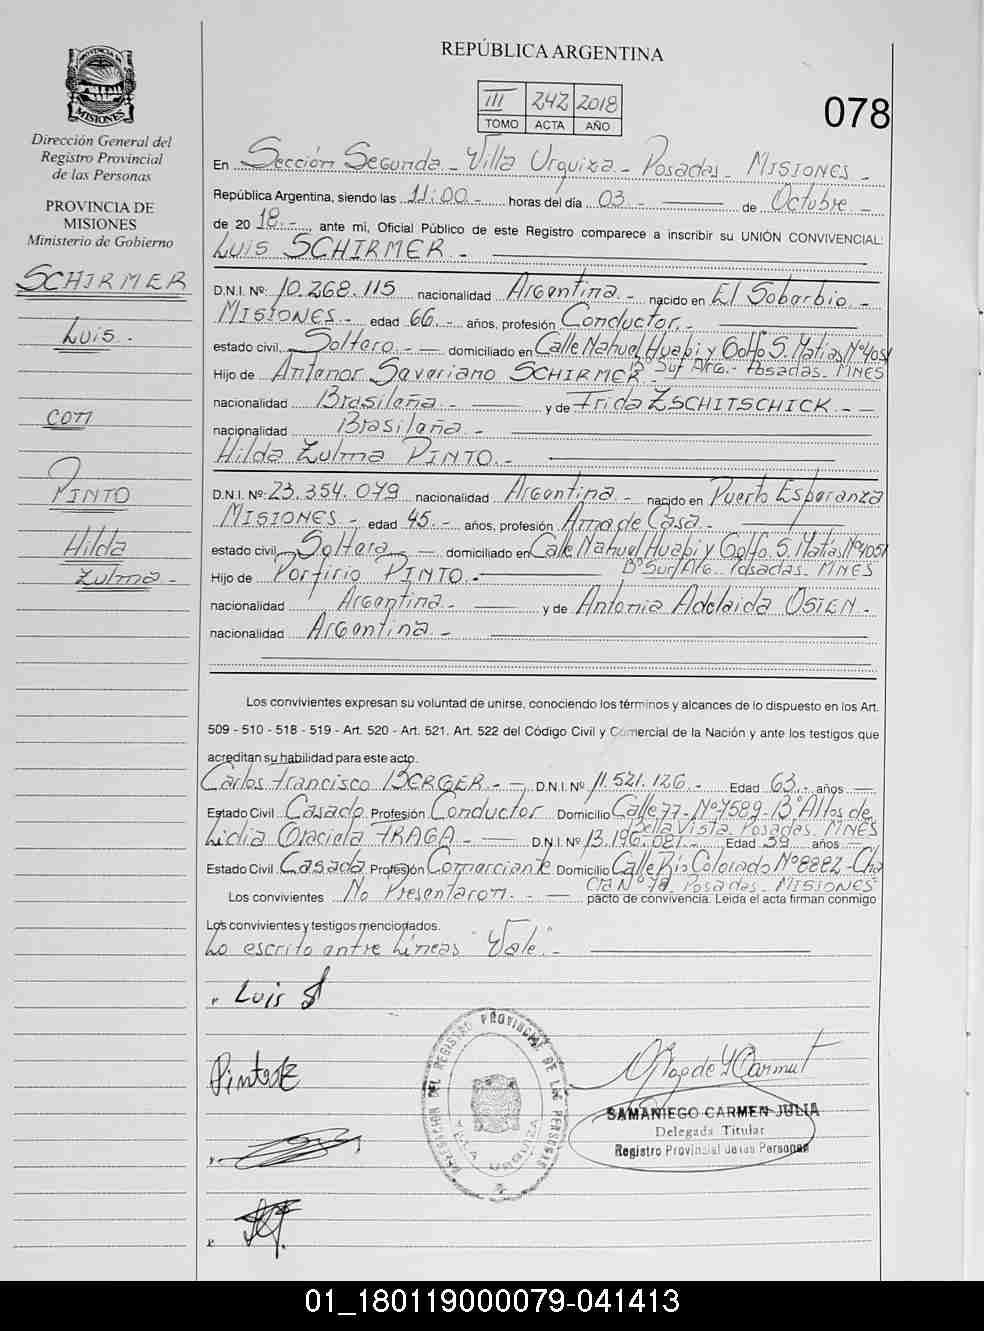 REPÚBLICA ARGENTINA
III 242 2018
TOMO ACTA AÑO
078
PROVINCIA DE
MISIONES
Dirección General del
Registro Provincial
de las Personas
PROVINCIA DE
MISIONES
Ministerio de Gobierno
SCHIRMER
Luis.-
con
PINTO
Hilda
Zulma-
En Sección Segunda - Villa Urquiza - Posadas - MISIONES -
República Argentina, siendo las 11:00.- horas del día 03.- de Octubre.-
de 20 18.- ante mi, Oficial Público de este Registro comparece a inscribir su UNIÓN CONVIVENCIAL:
Luis SCHIRMER.-
D.N.I. Nº: 10.268.115 nacionalidad Argentina.- nacido en El Soberbio.-
MISIONES.- edad 66.- años, profesión Conductor.-
estado civil, Soltero.- domiciliado en Calle Nahuel Huapi y Golfo S. Matías Nº4051
Bº Sur Arg.- Posadas. MNES
Hijo de Antenor Saveriano SCHIRMER.-
nacionalidad Brasileña.- y de Frida ZSCHITSCHICK.-
nacionalidad Brasileña.-
Hilda Zulma PINTO.-
D.N.I. Nº: 23.354.079 nacionalidad Argentina.- nacido en Puerto Esperanza
MISIONES.- edad 45.- años, profesión Ama de Casa.-
estado civil Soltera.- domiciliado en Calle Nahuel Huapi y Golfo S. Matías Nº4051
Bº Sur Arg. Posadas. MNES
Hijo de Porfirio PINTO.-
nacionalidad Argentina.- y de Antonia Adelaida OSIEN.-
nacionalidad Argentina.-
Los convivientes expresan su voluntad de unirse, conociendo los términos y alcances de lo dispuesto en los Art.
509 - 510 - 518 - 519 - Art. 520 - Art. 521. Art. 522 del Código Civil y Comercial de la Nación y ante los testigos que
acreditan su habilidad para este acto.
Carlos Francisco BERGER.- D.N.I. Nº 11.521.126.- Edad 63.- años
Estado Civil Casado Profesión Conductor Domicilio Calle 77- Nº7589- Bº Altos de
Bella Vista. Posadas. MNES
Lidia Graciela FRAGA.- D.N.I. Nº 13.196.081.- Edad 59 años
Estado Civil Casada Profesión Comerciante Domicilio Calle Río Colorado Nº8882- Cha
Cra Nº 78. Posadas.- MISIONES
Los convivientes No Presentaron.- pacto de convivencia. Leida el acta firman conmigo
Los convivientes y testigos mencionados.
Lo escrito entre Líneas "Vale".-
Luis S
REGISTRO PROVINCIAL DE LAS PERSONAS
VILLA URQUIZA
SAMANIEGO CARMEN JULIA
Delegada Titular
Registro Provincial de las Personas
01_180119000079-041413